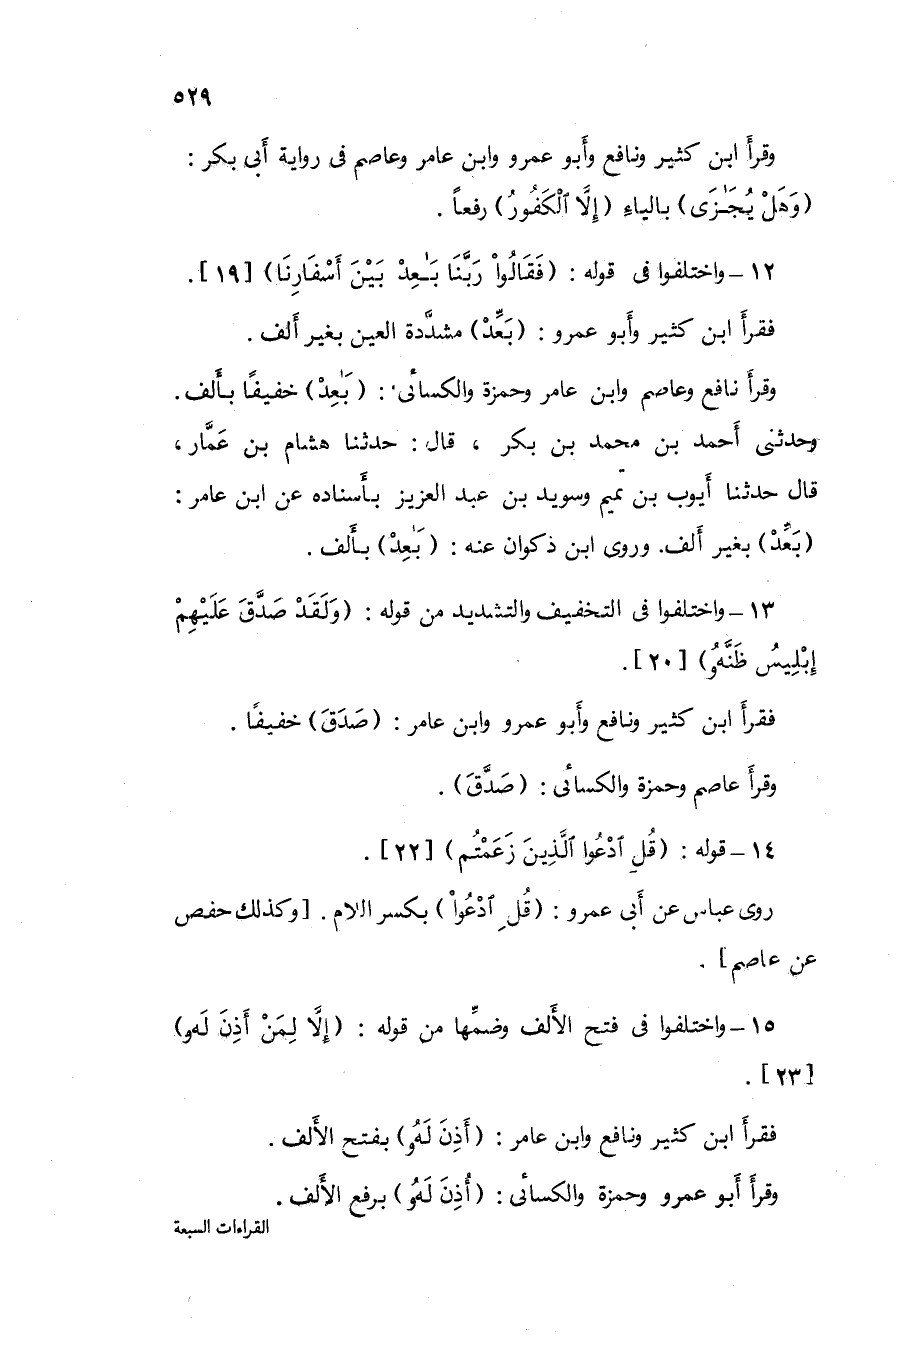 ٥٢٩
وقرأَ ابن كثير ونافع وأَبو عمرو وابن عامر وعاصم فى رواية أَبى بكر :
(وَهَلْ يُجَٰزَى) بالياءِ (إِلَّا ٱلْكَفُورُ) رفعاً .
١٢ – واختلفوا فى قوله : (فَقَالُواْ رَبَّنَا بَٰعِدْ بَيْنَ أَسْفَارِنَا) [١٩].
فقرأَ ابن كثير وأَبو عمرو : (بَعِّدْ) مشدَّدة العين بغير أَلف .
وقرأَ نافع وعاصم وابن عامر وحمزة والكسائى : ( بَٰعِدْ) خفيفًا بأَلف.
وحدثنى أَحمد بن محمد بن بكر ، قال : حدثنا هشام بن عَمَّار ،
قال حدثنا أَيوب بن تميم وسويد بن عبد العزيز بأَسناده عن ابن عامر :
(بَعِّدْ) بغير أَلف. وروى ابن ذكوان عنه : ( بَٰعِدْ) بأَلف .
١٣ – واختلفوا فى التخفيف والتشديد من قوله : (وَلَقَدْ صَدَّقَ عَلَيْهِمْ
إِبْلِيسُ ظَنَّهُو) [٢٠].
فقرأَ ابن كثير ونافع وأَبو عمرو وابن عامر : (صَدَقَ) خفيفًا .
وقرأَ عاصم وحمزة والكسائى : (صَدَّقَ) .
١٤ – قوله : (قُلِ ٱدْعُوا ٱلَّذِينَ زَعَمْتُم) [٢٢] .
روى عباس عن أَبى عمرو : (قُلِ ٱدْعُواْ) بكسر اللام . [وكذلك حفص
عن عاصم] .
١٥ – واختلفوا فى فتح الأَلف وضمِّها من قوله : (إِلَّا لِمَنْ أَذِنَ لَهو)
[٢٣] .
فقرأَ ابن كثير ونافع وابن عامر : (أَذِنَ لَهُو) بفتح الأَلف .
وقرأَ أَبو عمرو وحمزة والكسائى : (أُذِنَ لَهُو) برفع الأَلف .
القراءات السبعة